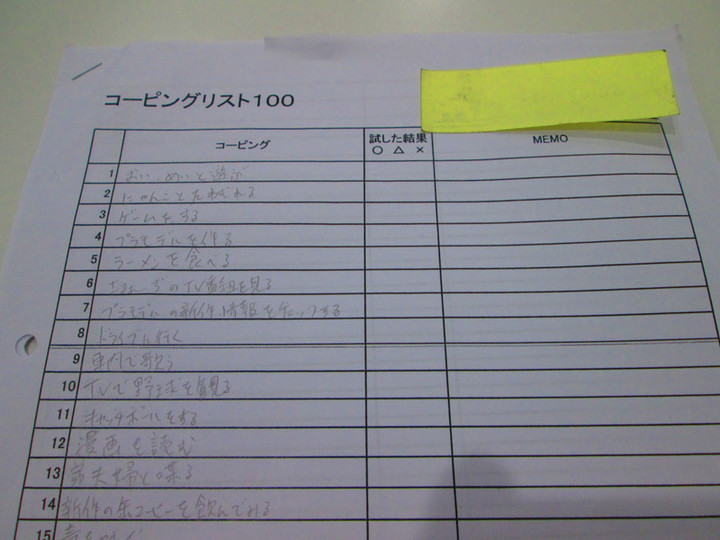 コーピングリスト100
コーピング 試した結果 MEMO
○ △ ×
1 おい、めいと遊ぶ
2 にゃんことたわむれる
3 ゲームをする
4 プラモデルを作る
5 ラーメンを食べる
6 のTV番組を見る
7 プラモデルの新作情報をチェックする
8 ドライブに行く
9 車内で歌う
10 TVで野球を観る
11 キャッチボールをする
12 漫画を読む
13 夫婦と喋る
14 新作の缶コーヒーを飲んでみる
15